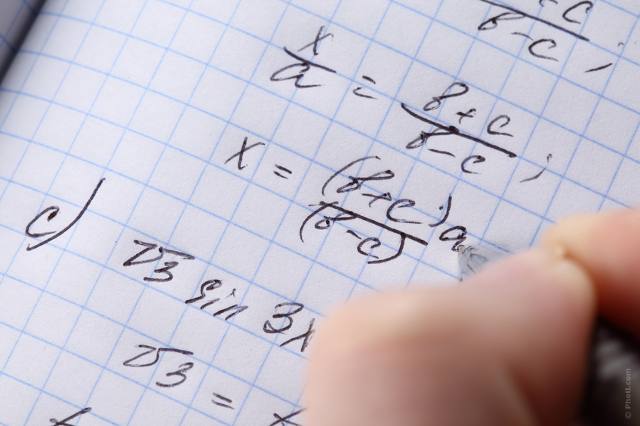 +c
b-c ;
x/a = b+c/b-c ;
x = (b+c)a/(b-c)
c)
√3 sin 3x
√3 =
© Photl.com